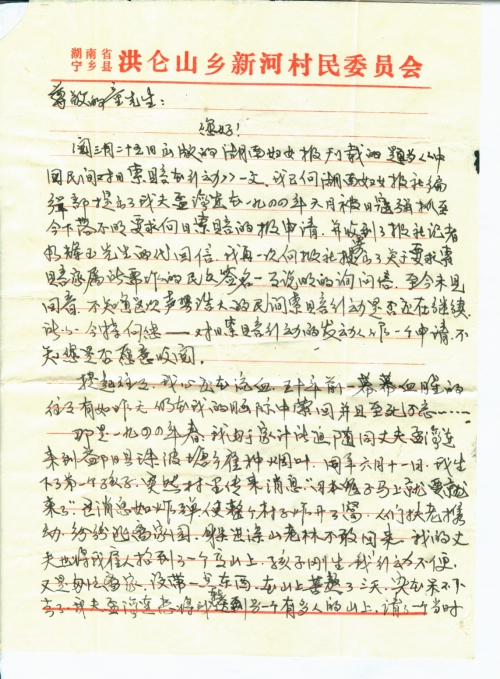 湖南省
宁乡县 洪仑山乡新河村民委员会
尊敬的童先生:
您好!
阅三月二十五日出版的湖南妇女报刊载的题为《中
国民间对日索赔在行动》一文,我曾向湖南妇女报社编
辑部提出了我夫孟海连在一九四四年六月被日军强抓至
今下落不明要求向日索赔的报申请,并收到了报社记者
先生的代回信,我再一次向报社提出了关于要求索
赔亲属所要作的民众签名一百说明的询问信,至今未见
回音,不知这次声势浩大的民间索赔行动是否还在继续,
所以今特向您——对日索赔行动的发动人作一个申请,不
知您是否愿意收阅。
提起往事,我心在流血,五十年前一幕幕血腥的
往事有如昨天,仍在我的脑际中萦回并且至死不忘……
那是一九四四年春,我由于家计所迫,随同丈夫孟海连
来到益阳县泥波塘乡种烟叶,同年六月十一日,我生
下了第一个孩子,突然村里传来消息:"日本鬼子马上就要
来了"这消息如炸弹使整个村子炸开了窝,人们扶老携
幼,纷纷逃离家园,躲进深山老林不敢回来,我的丈
夫也将我雇人抬到了一个高山上,孩子刚生,我行动不便,
又是匆忙离家,没带一点东西,在山上熬了三天,实在呆不下
去了,我夫孟海连将我转到另一个有多人的山上,请了一个当时